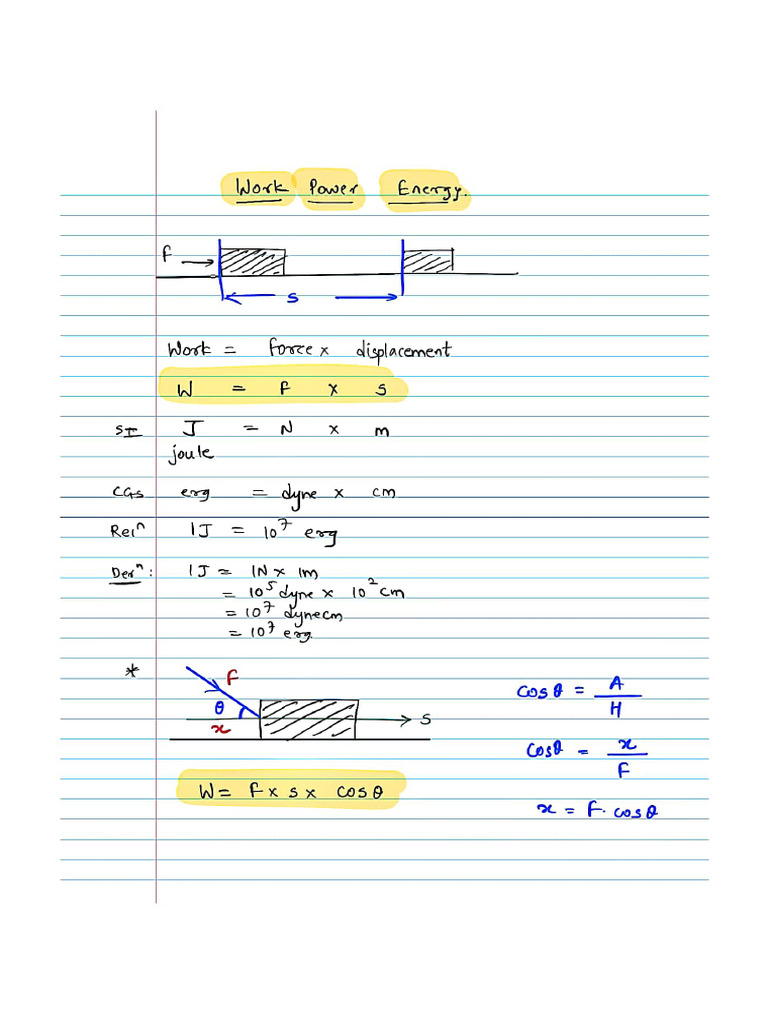 Work Power Energy.
F
s
Work = force x displacement
W = F x s
SI J = N x m
joule
CGS erg = dyne x cm
Relⁿ 1J = 10⁷ erg
Derⁿ: 1J = 1N x 1m
= 10⁵ dyne x 10² cm
= 10⁷ dynecm
= 10⁷ erg.
*
F
θ
x
s
W = F x s x cosθ
cosθ = A/H
cosθ = x/F
x = F. cosθ